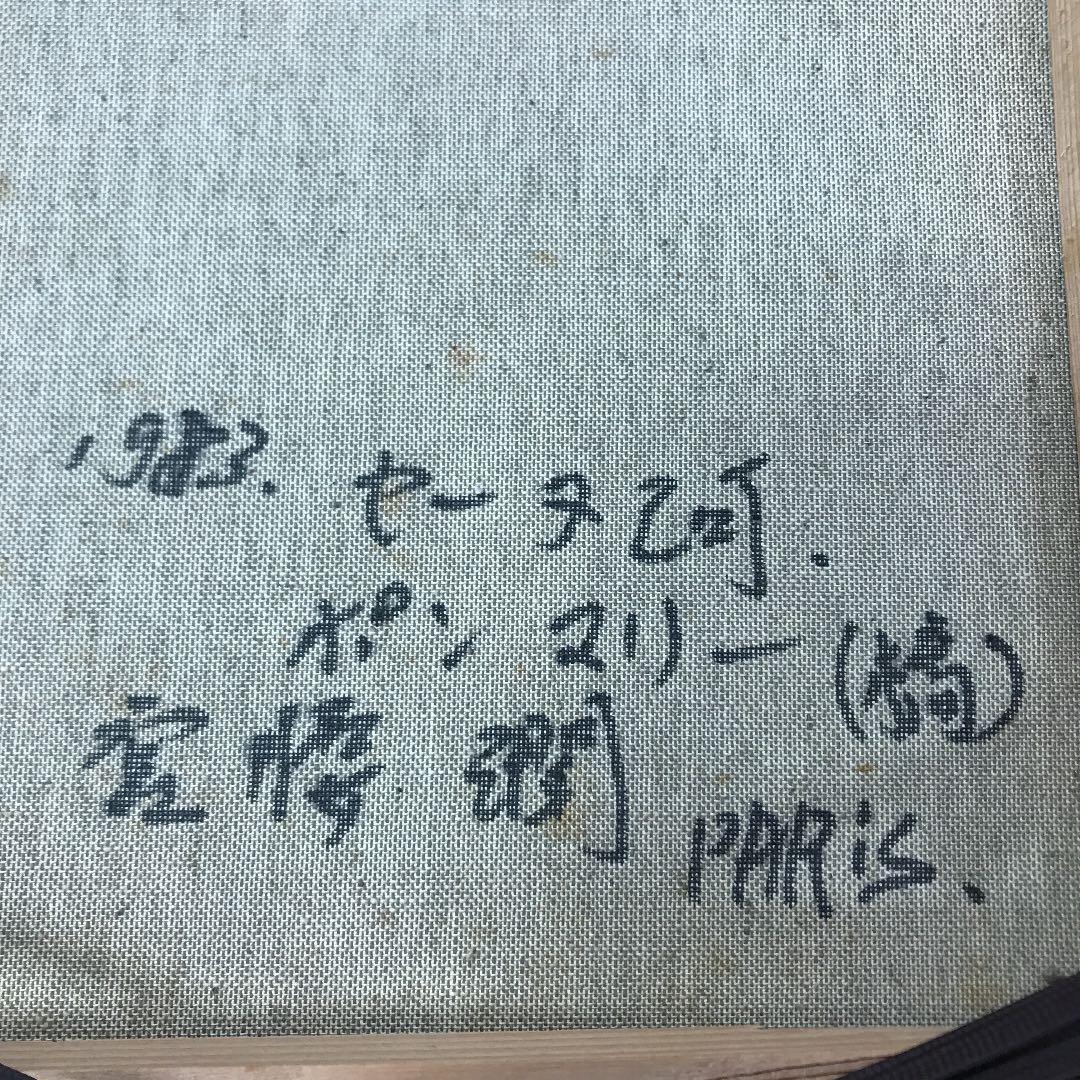 1983. セーヌ河.
ポン マリー (橋)
PARiS.